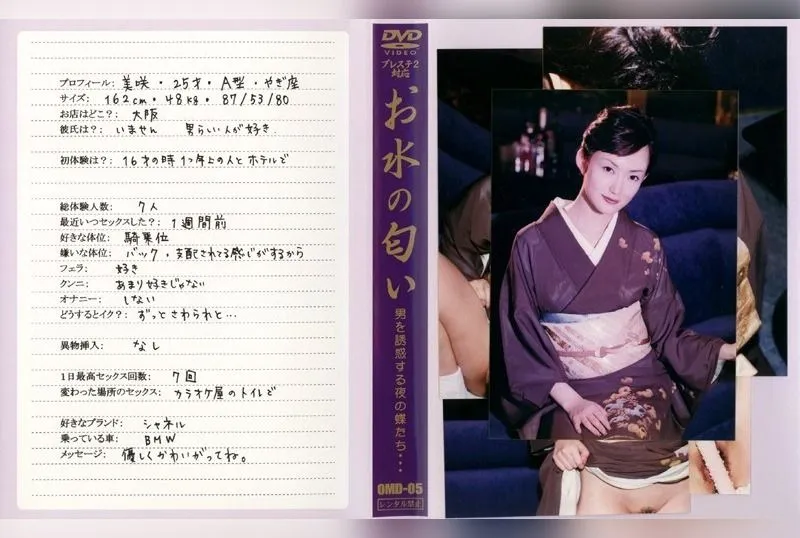 プロフィール: 美咲・25才・A型・やぎ座
サイズ: 162cm・48kg・87/53/80
お店はどこ?: 大阪
彼氏は?: いません 男らしい人が好き
総体験人数: 7人
最近いつセックスした?: 1週間前
好きな体位: 騎乗位
嫌いな体位: バック・支配されてる感じがするから
フェラ: 好き
クンニ: あまり好きじゃない
オナニー: しない
どうするとイク?: ずっとさわられと…
異物挿入: なし
1日最高セックス回数: 7回
変わった場所のセックス: カラオケ屋のトイレで
好きなブランド: シャネル
乗っている車: BMW
メッセージ: 優しくかわいがってね。
DVD
VIDEO
プレステ2
対応
お水の匂い
男を誘惑する夜の蝶たち…
OMD-05
レンタル禁止